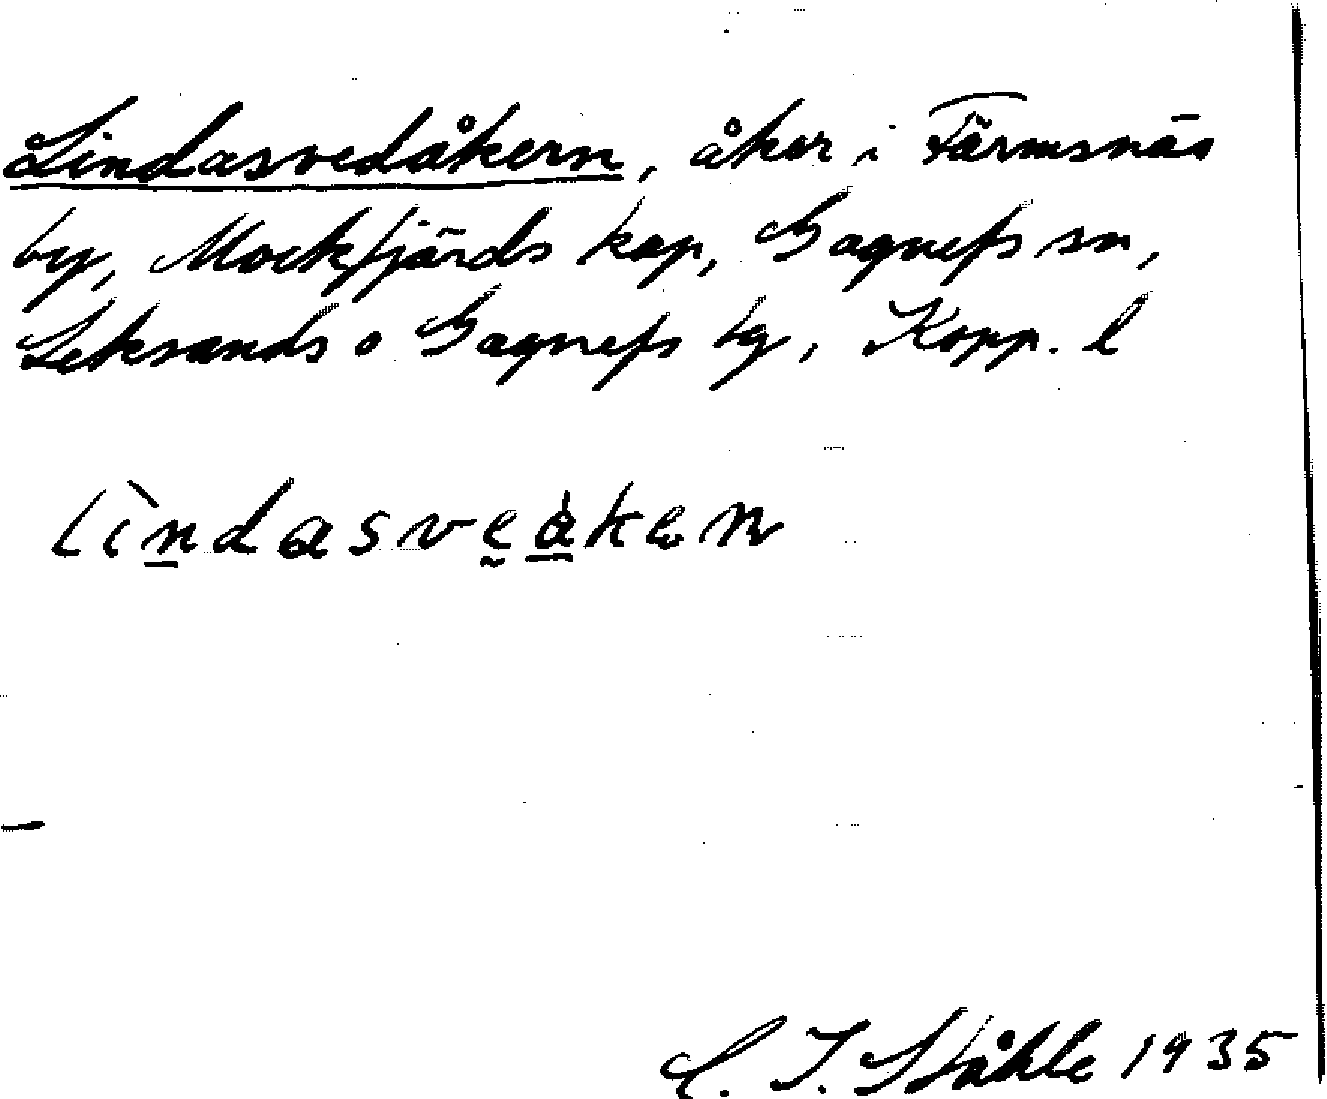 Lindasvedåkern, åker i Färmsnäs
by, Mockfjärds kap, Gagnefs sn,
Leksands o Gagnefs tg, Kopp. l
lìndasveåken
C. I. Ståhle 1935